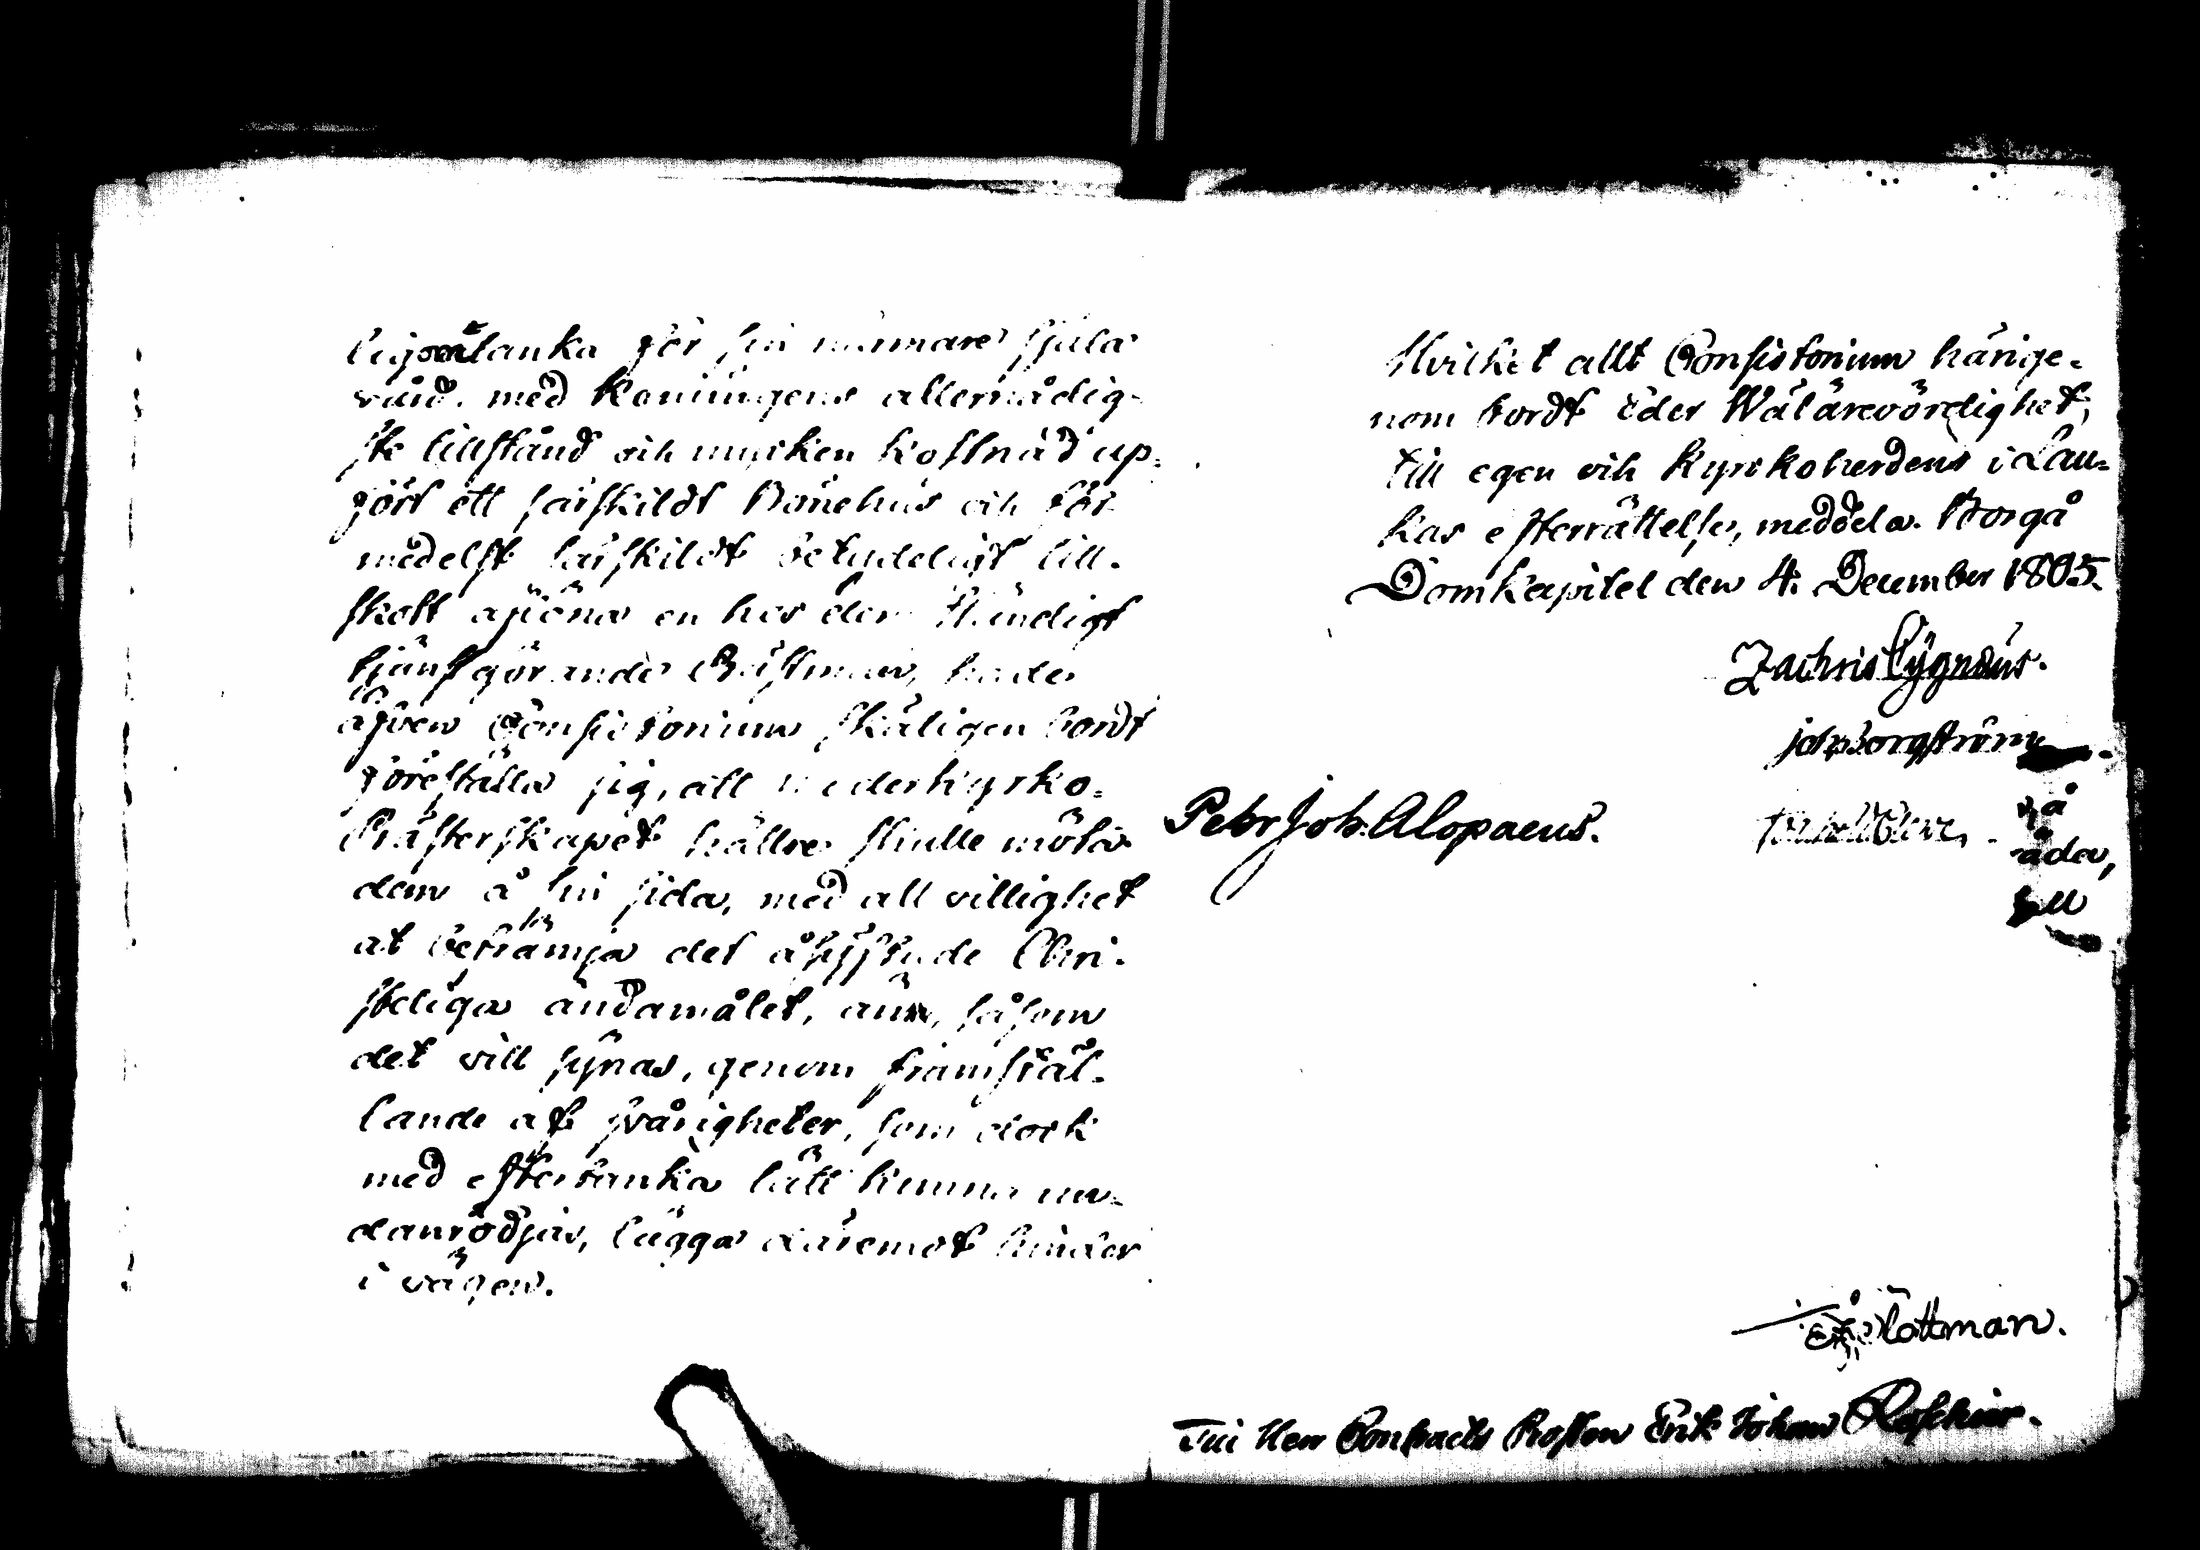 lig omtanka för sin närmare själa
vård, med Konungens allernådig-
ste tillstånd och mycken kostnad up-
fört ett särskildt Bönehus och för-
medelst särskildt betydeligt till-
skott aflöna en hos dem ständigt
tjänstgörande Prästman, hade
äfven Consistorium skäligen bordt
föreställa sig, att moderkyrko-
Prästerskapet hällre skulle möta
dem å sin sida, med all villighet
at befrämja det åsyftade Chri-
steliga ändamålet, än, såsom
det vill synas, genom framstäl-
lande af svårigheter, som dock
med eftertanka lätt kunna un-
danrödjas, lägga däremot hinder
i vägen.
Hvilket allt Consistorium härige-
nom bordt Eder Wälärevördighet,
till egen och Kyrkoherdens i Lau-
kas efterrättelse, meddela. Borgå
Domkapitel den 4. December 1805.
Zachris Cygnæus.
Joh. Borgström
Petr Joh. Alopaeus.
å
åda,
ll
Slottman.
Till Herr Contracts Prosten Erik Johan Roschier.